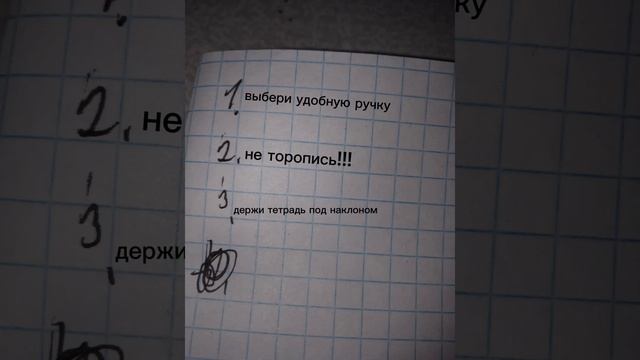 1. выбери удобную ручку
2. не торопись!!!
3. держи тетрадь под наклоном